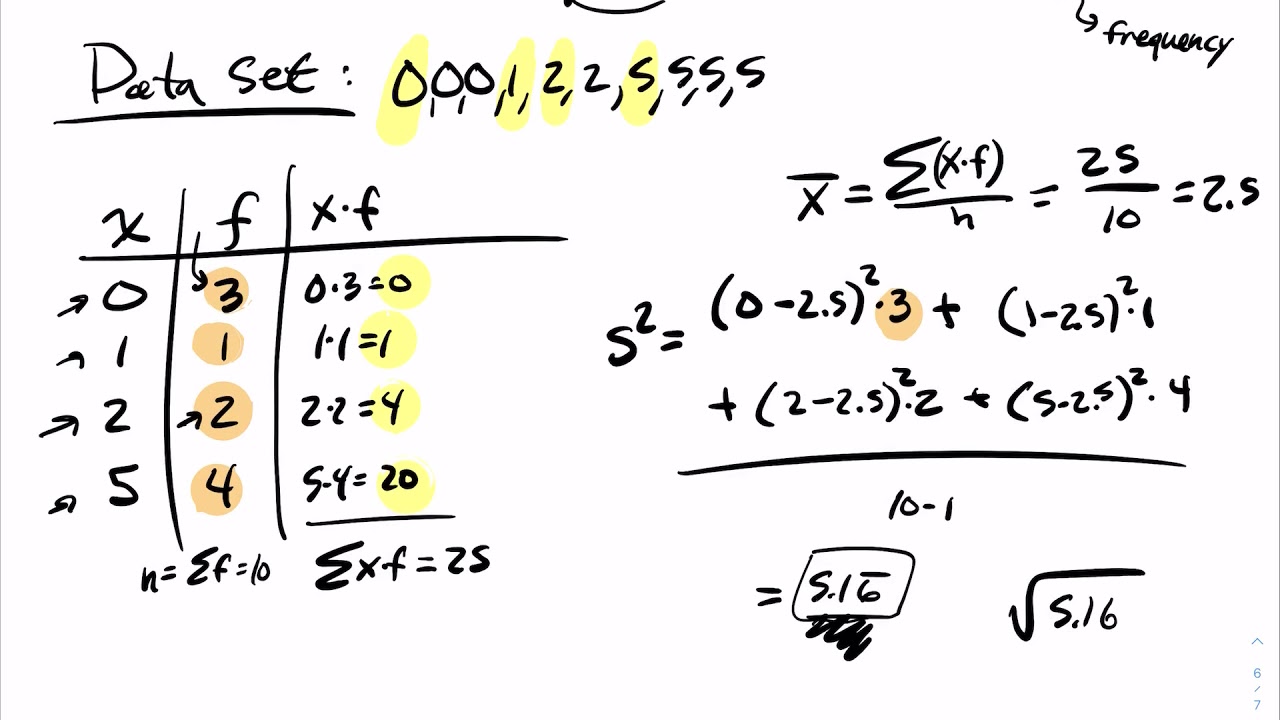 frequency
Data set: 0,0,0,1,2,2,5,5,5,5
x | f | x·f
0 | 3 | 0·3=0
1 | 1 | 1·1=1
2 | 2 | 2·2=4
5 | 4 | 5·4=20
n=Σf=10 Σx·f=25
x̅ = Σ(x·f)/n = 25/10 = 2.5
s²= (0-2.5)²·3 + (1-2.5)²·1
+ (2-2.5)²·2 + (5-2.5)²·4
10-1
= 5.16̅
√5.16
6
/
7